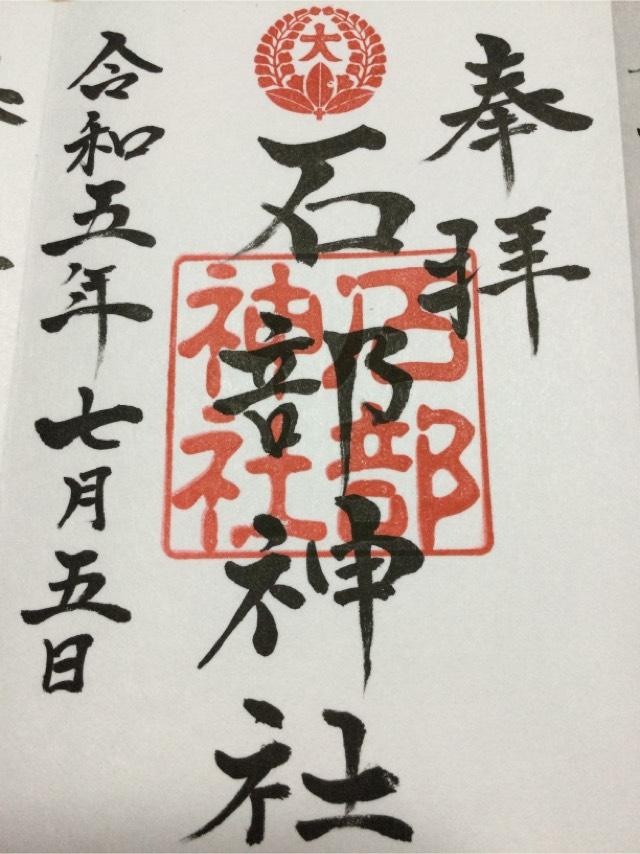 奉拝
大
石部神社
石部神社
令和五年七月五日